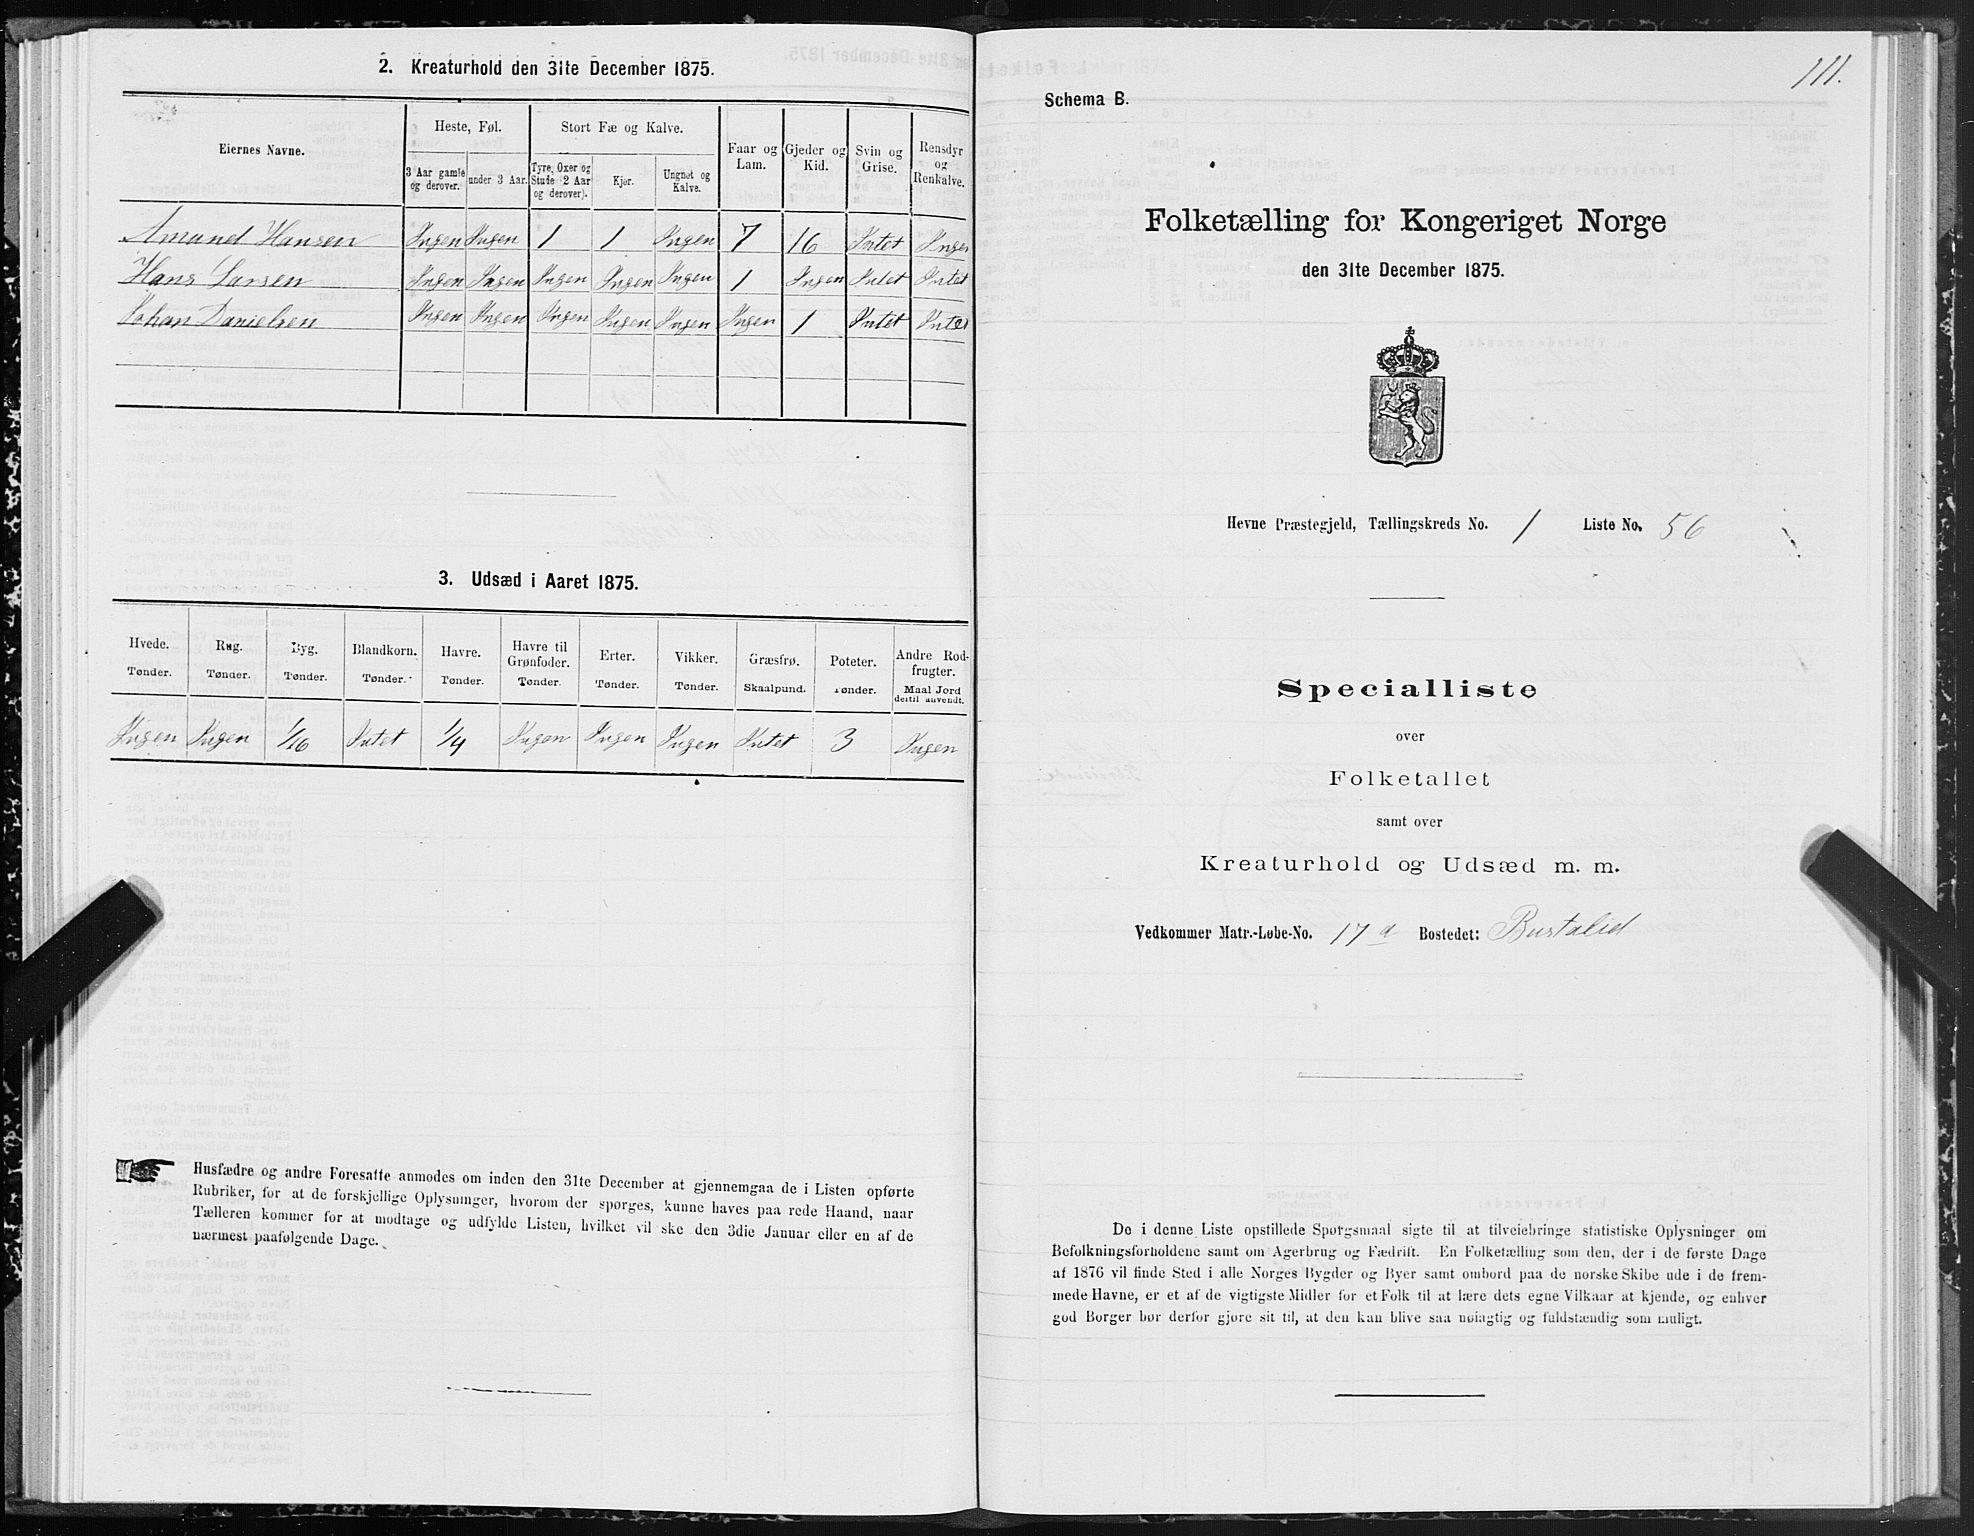 2. Kreaturhold den 31te December 1875.
Eiernes Navne.
Heste, Føl.
Stort Fæ og Kalve.
Faar og Lam.
Gjeder og Kid.
Svin og Grise.
Rensdyr og Renkalve.
3 Aar gamle og derover.
under 3 Aar.
Tyre, Oxer og Stude 2 Aar og derover).
Kjør.
Ungnøt og Kalve.
Amund Hansen Ingen Ingen 1 1 Ingen 7 16 Intet Ingen
Hans Larsen Ingen Ingen Ingen Ingen Ingen 1 Ingen Intet Intet
Johan Danielsen Ingen Ingen Ingen Ingen Ingen Ingen 1 Intet Intet
3. Udsæd i Aaret 1875.
Hvede. Rug. Byg. Blandkorn. Havre. Havre til Grønfoder. Erter. Vikker. Græsfrø. Poteter. Andre Rodfrugter.
Tønder. Tønder. Tønder. Tønder. Tønder. Tønder. Tønder. Tønder. Skaalpund. Tønder. Maal Jord dertil anvendt.
Ingen Ingen 1/16 Intet 1/4 Ingen Ingen Ingen Intet 3 Ingen
Husfædre og andre Foresatte anmodes om inden den 31te December at gjennemgaa de i Listen opførte
Rubriker, for at de forskjellige Oplysninger, hvorom der spørges, kunne haves paa rede Haand, naar
Tælleren kommer for at modtage og udfylde Listen, hvilket vil ske den 3die Januar eller en af de
nærmest paafølgende Dage.
111.
Schema B.
Folketælling for Kongeriget Norge
den 31te December 1875.
Hevne Præstegjeld, Tællingskreds No. 1 Liste No. 56
Specialliste
over
Folketallet
samt over
Kreaturhold og Udsæd m. m.
Vedkommer Matr.-Løbe-No. 17 a Bostedet: Bustalid
De i denne Liste opstillede Spørgsmaal sigte til at tilveiebringe statistiske Oplysninger om
Befolkningsforholdene samt om Agerbrug og Fædrift. En Folketælling som den, der i de første Dage
af 1876 vil finde Sted i alle Norges Bygder og Byer samt ombord paa de norske Skibe ude i de frem-
mede Havne, er et af de vigtigste Midler for et Folk til at lære dets egne Vilkaar at kjende, og enhver
god Borger bør derfor gjøre sit til, at den kan blive saa nøiagtig og fuldstændig som muligt.